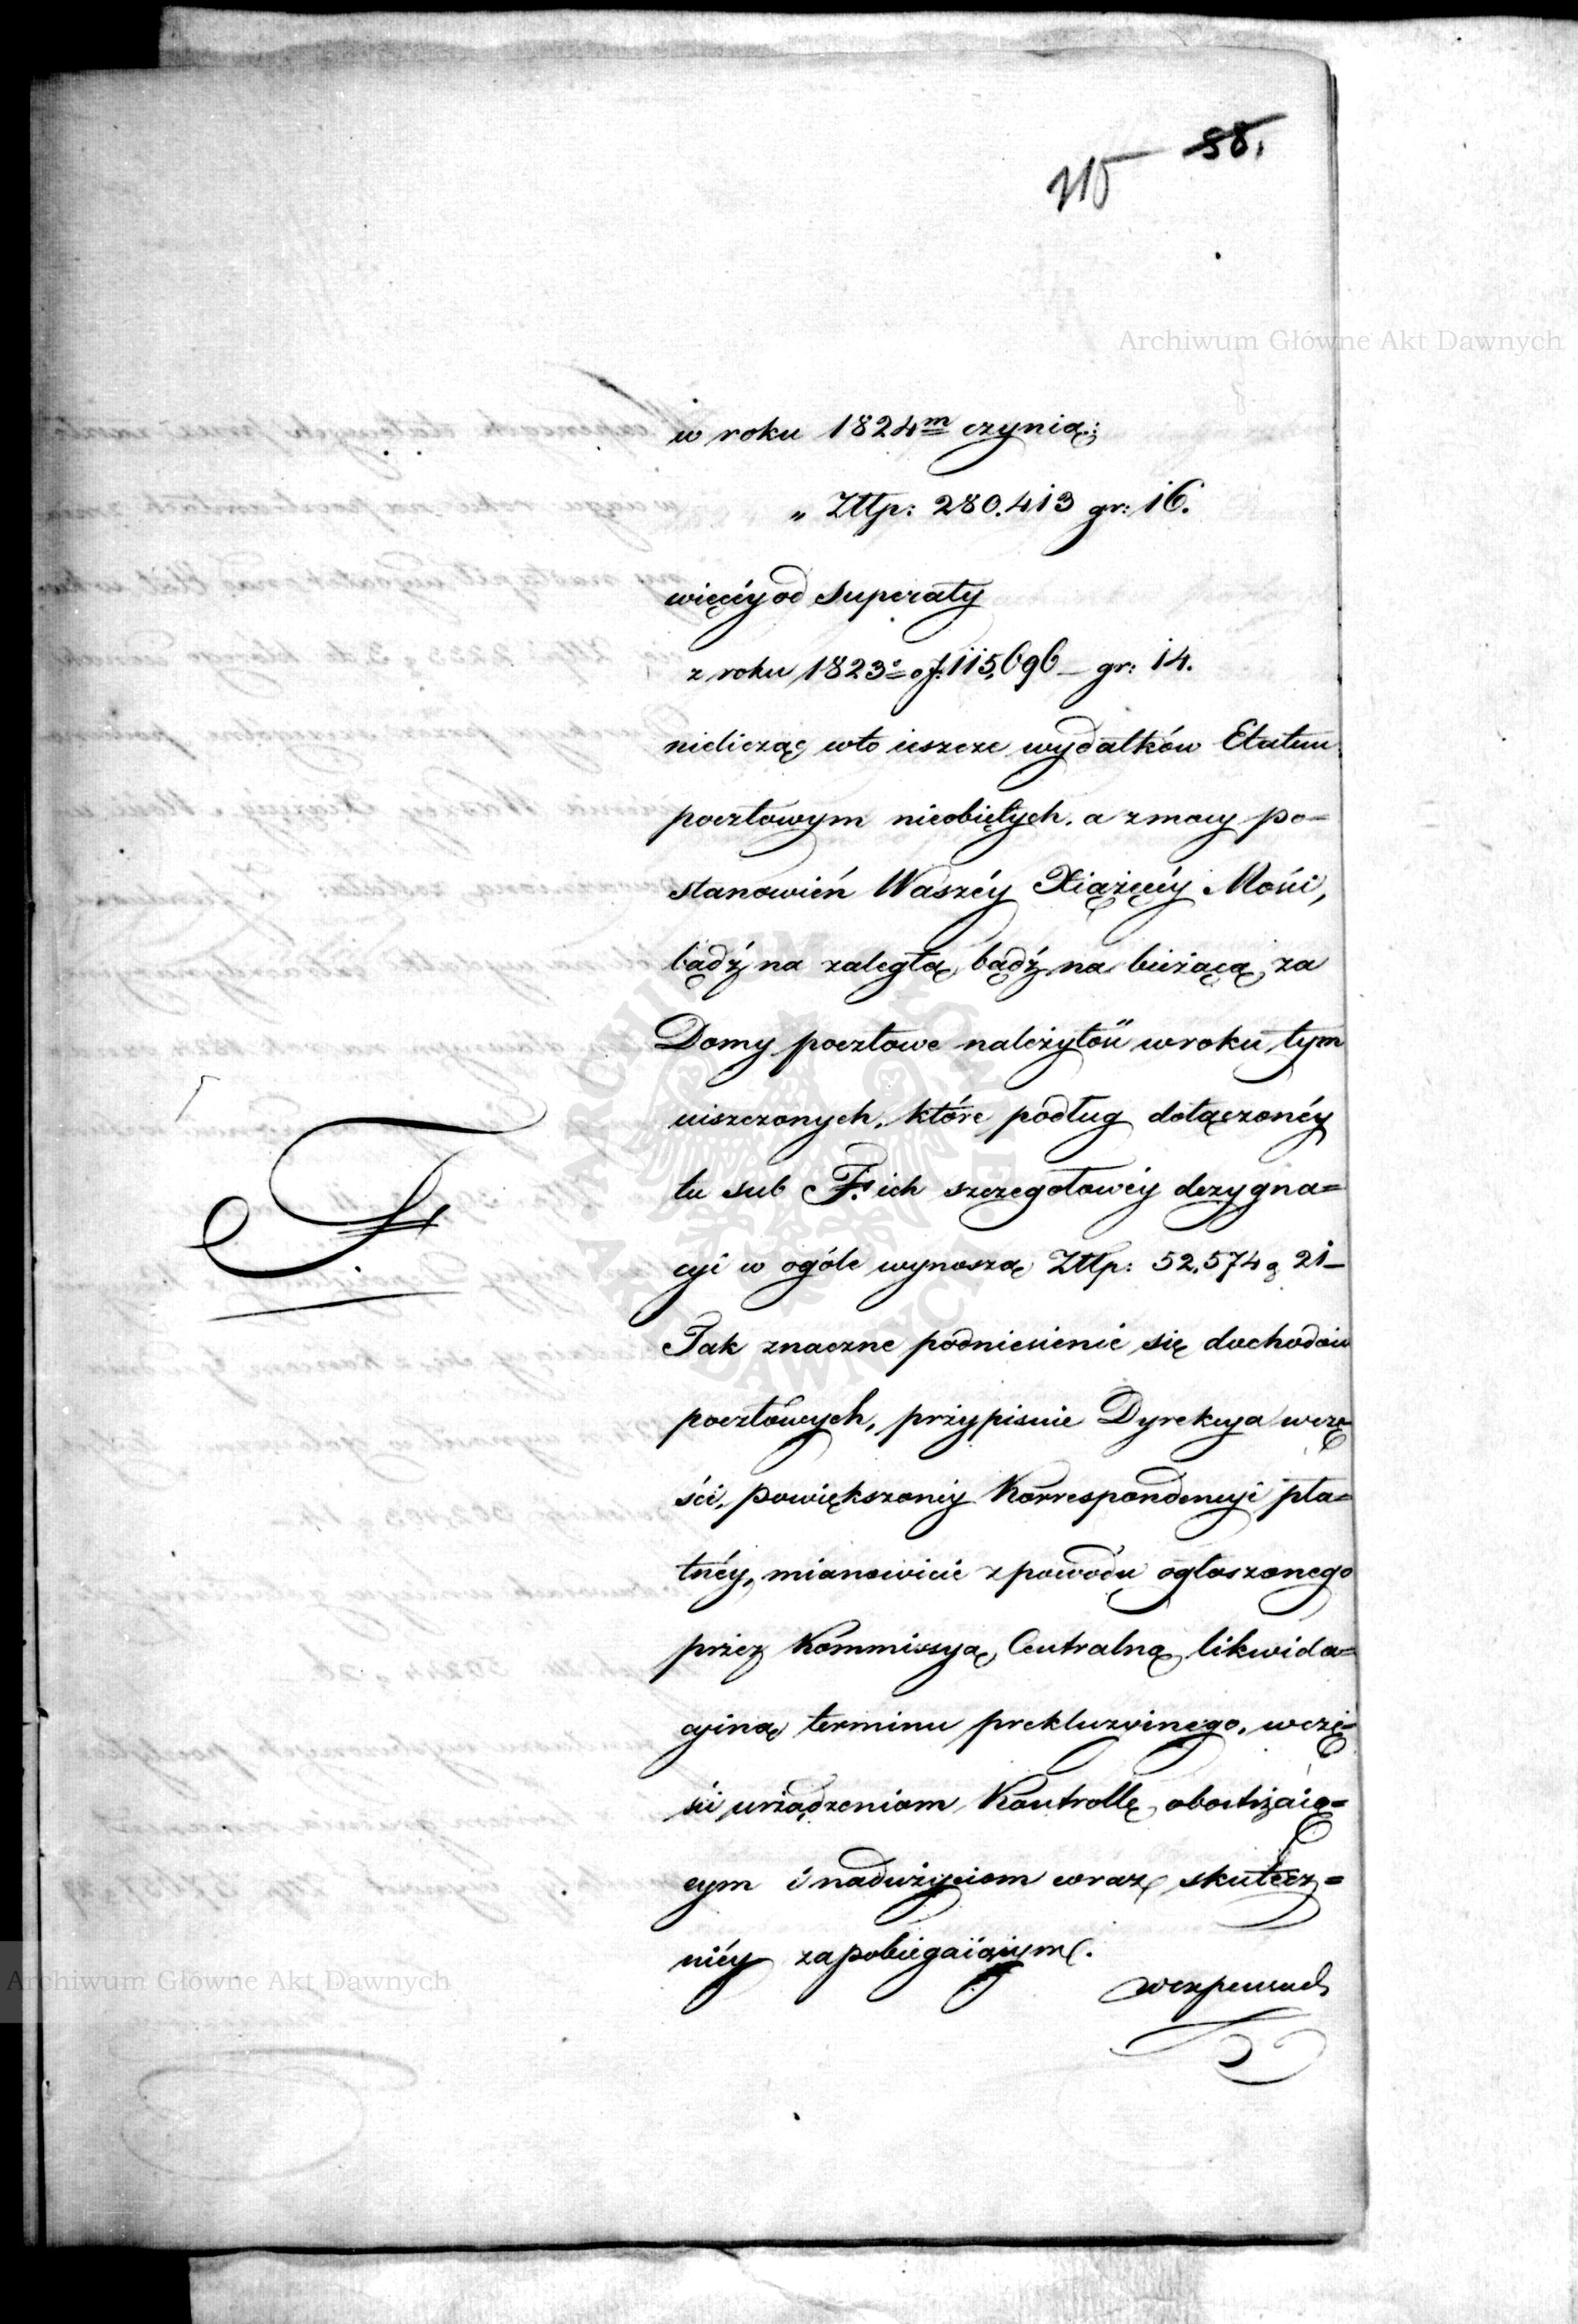 88.
115
Archiwum Główne Akt Dawnych
w roku 1824m czynią:
„ Złłp: 280.413 gr: 16.
więcéy od Superaty
z roku 1823o f: 115,696 _ gr: 14.
nieliczac wto ieszcze wydatków Etatem
pocztowym nieobiętych. a zmocy po=
stanowień Waszéy Xiążęcéy Mości,
bądź na zaległą, bądź na bieżącą za
Domy pocztowe należytość w roku tym
uiszczonych, które podług dołączonéy
F
tu sub F. ich szczegołowéy dezygna=
cyi w ogóle wynoszą Złłp: 52,574 g 21 _
Tak znaczne podniesienie się dochodów
pocztowych, przypisuie Dyrekcya wczę
ści, powiększonéy Korrespondencyi pła=
tnéy, mianowicie z powodu ogłoszonego
przez Kommissyą Centralną likwida=
cyiną terminu prekluzyinego, wczę=
ści urządzeniom Kontrollę obostrzaią=
cym i nadużyciom coraz skutecz=
niéy zapobiegaiącym.
wexpensach
Archiwum Główne Akt Dawnych
ARCHIWUM GŁÓWNE AKT DAWNYCH